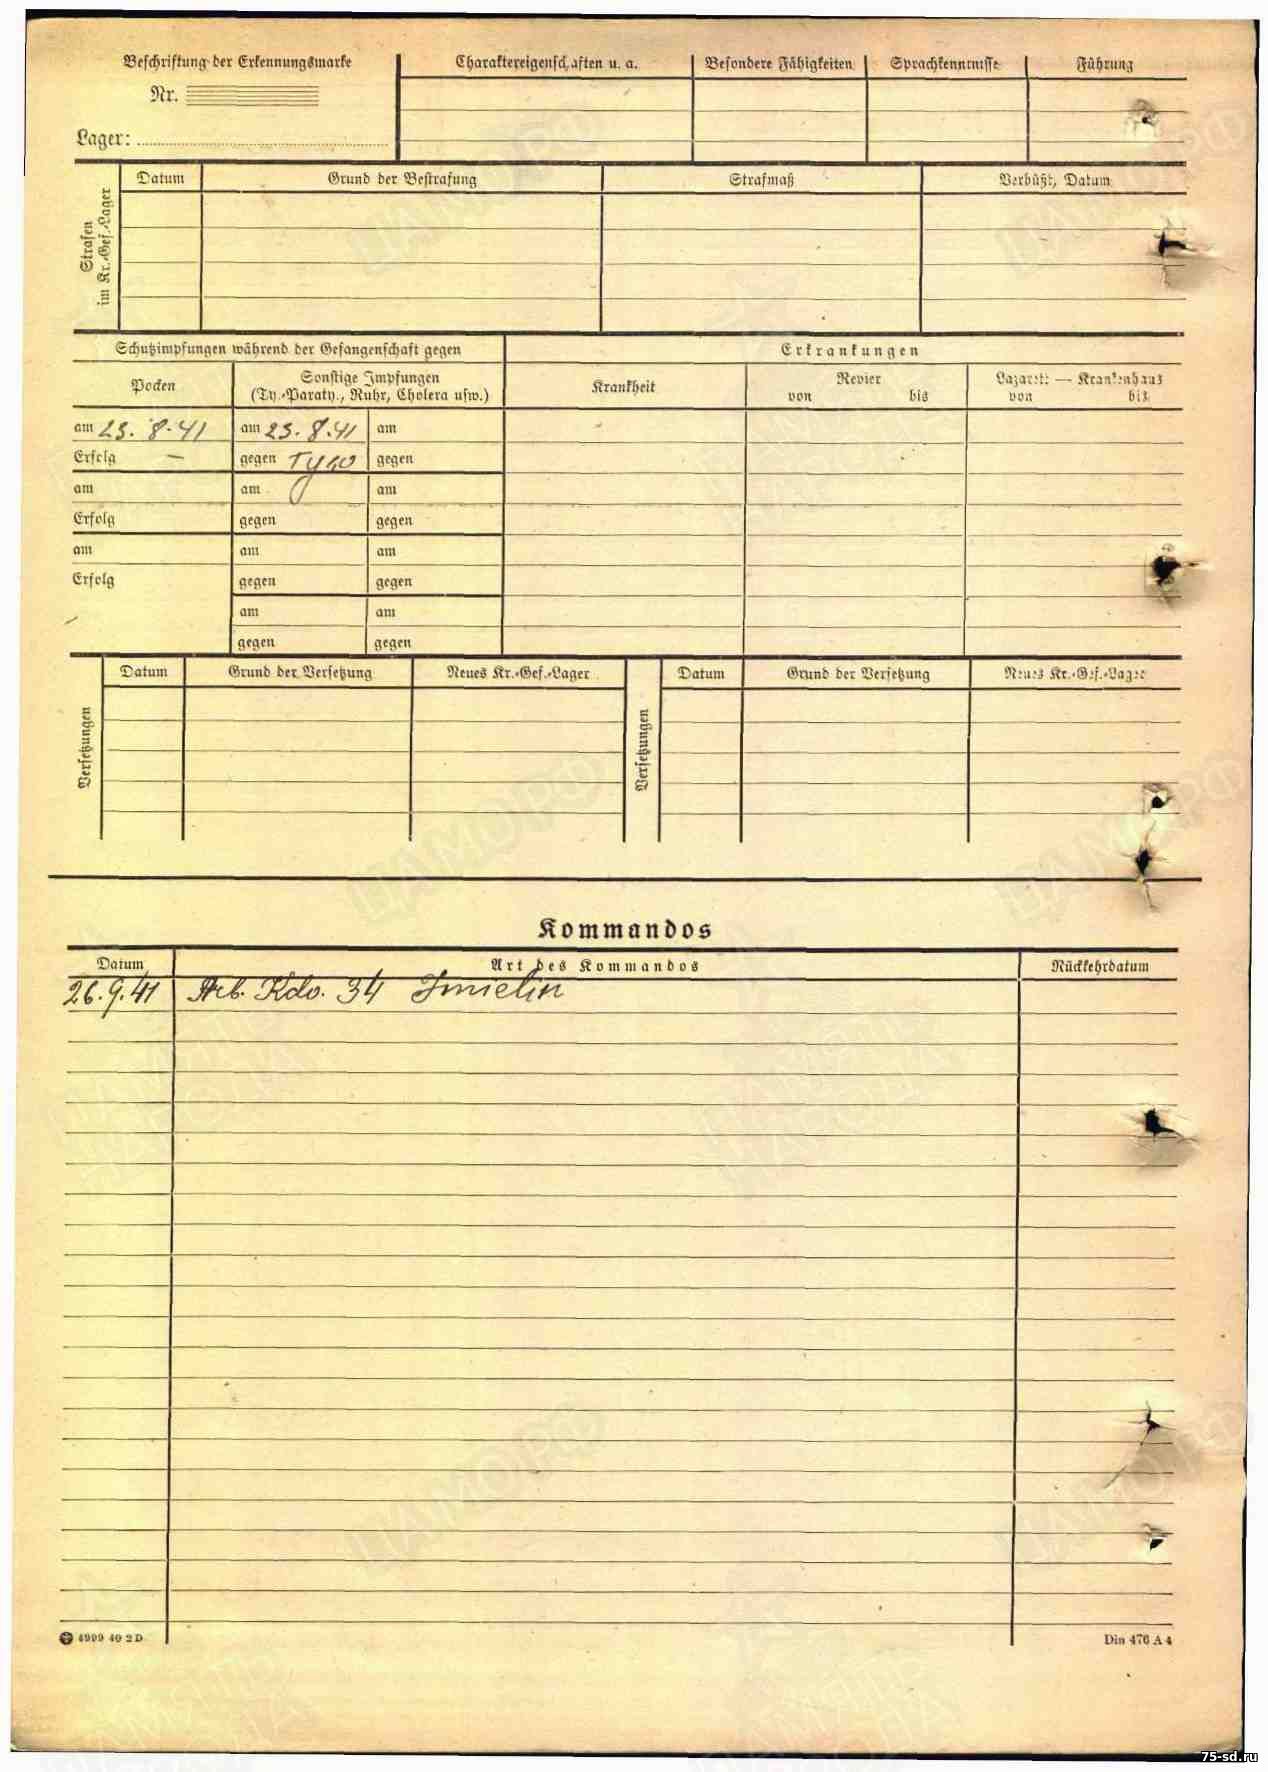 Beschriftung der Erkennungsmarke
Nr.
Lager:
Charaktereigenschaften u. a.
Besondere Fähigkeiten
Sprachkenntnisse
Führung
Strafen
im Kr.-Gef.-Lager
Datum
Grund der Bestrafung
Strafmaß
Verbüßt, Datum
Schutzimpfungen während der Gefangenschaft gegen
Erkrankungen
Pocken
Sonstige Impfungen
(Ty.-Paraty., Ruhr, Cholera usw.)
Krankheit
Revier
von bis
Lazarett — Krankenhaus
von bis
am 23. 8. 41 am 23. 8. 41 am
Erfolg — gegen gegen
am am am
Erfolg gegen gegen
am am am
Erfolg gegen gegen
am am
gegen gegen
Versetzungen
Datum Grund der Versetzung Neues Kr.-Gef.-Lager
Versetzungen
Datum Grund der Versetzung Neues Kr.-Gef.-Lager
Kommandos
Datum Art des Kommandos Rückkehrdatum
26.9.41 Arb. Kdo. 34 Imielin
4999 40 2 D
Din 476 A 4
ЦАМО.РФ
ПАМЯТЬ
НАРОДА
75-sd.ru